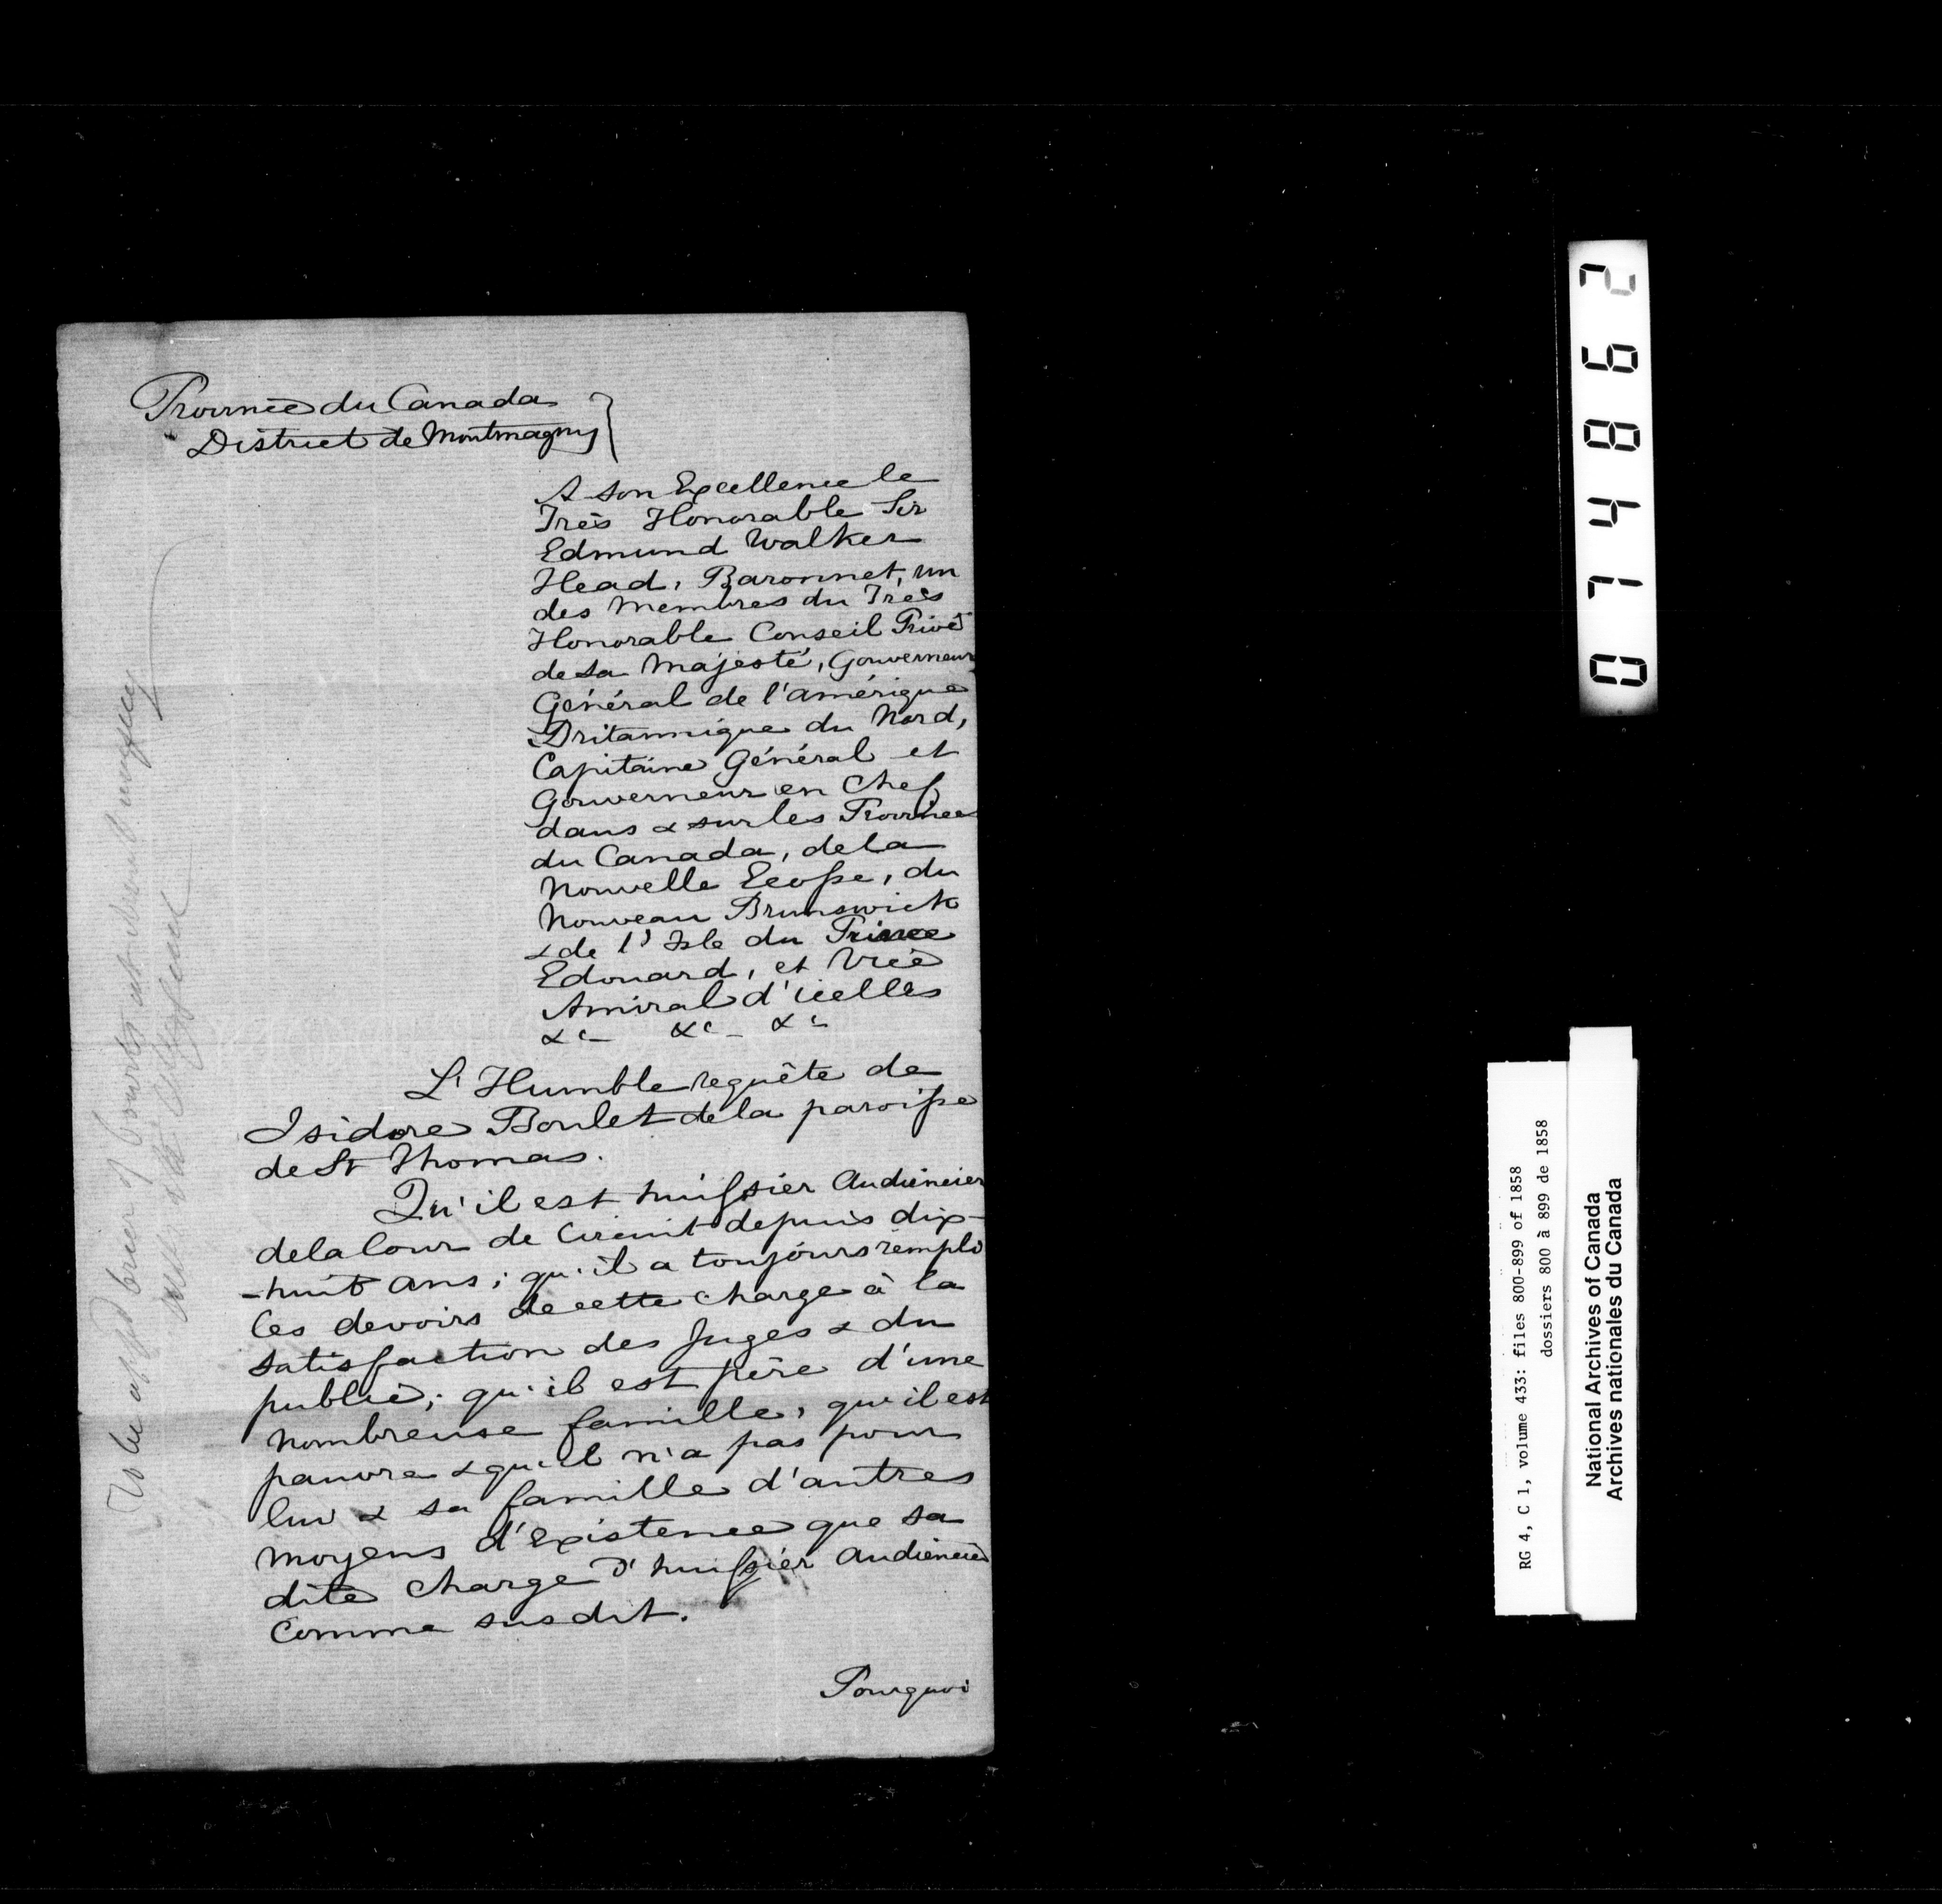 Province du Canada
District de Montmagny
A son Excellence le
Très Honorable Sir
Edmund Walker
Head, Baronnet, un
des Membres du Très
Honorable Conseil Privé
de sa Majesté, Gouverneur
Général de l'amérique
Britannique du Nord,
Capitaine Général et
Gouverneur en Chef
dans & sur les Provinces
du Canada, de la
Nouvelle Ecosse, du
Nouveau Brunswick
& de l'Isle du Prince
Edouard, et Vice
Amiral d'icelles
&c &c &c
L'Humble requête de
Isidore Boulet de la paroisse
de St Thomas.
Qu'il est huissier Audiencier
de la Cour de Circuit depuis dix-
-huit ans; qu'il a toujours rempli
les devoirs de cette charge à la
satisfaction des Juges & du
public; qu'il est père d'une
nombreuse famille, qu'il est
pauvre & qu'il n'a pas pour
lui & sa famille d'autres
moyens d'existence que sa
dite charge d'huissier Audiencier
comme susdit.
Pourquoi
To be appd crier of Courts
074862
RG 4, C 1, volume 433: files 800-899 of 1858
dossiers 800 à 899 de 1858
National Archives of Canada
Archives nationales du Canada